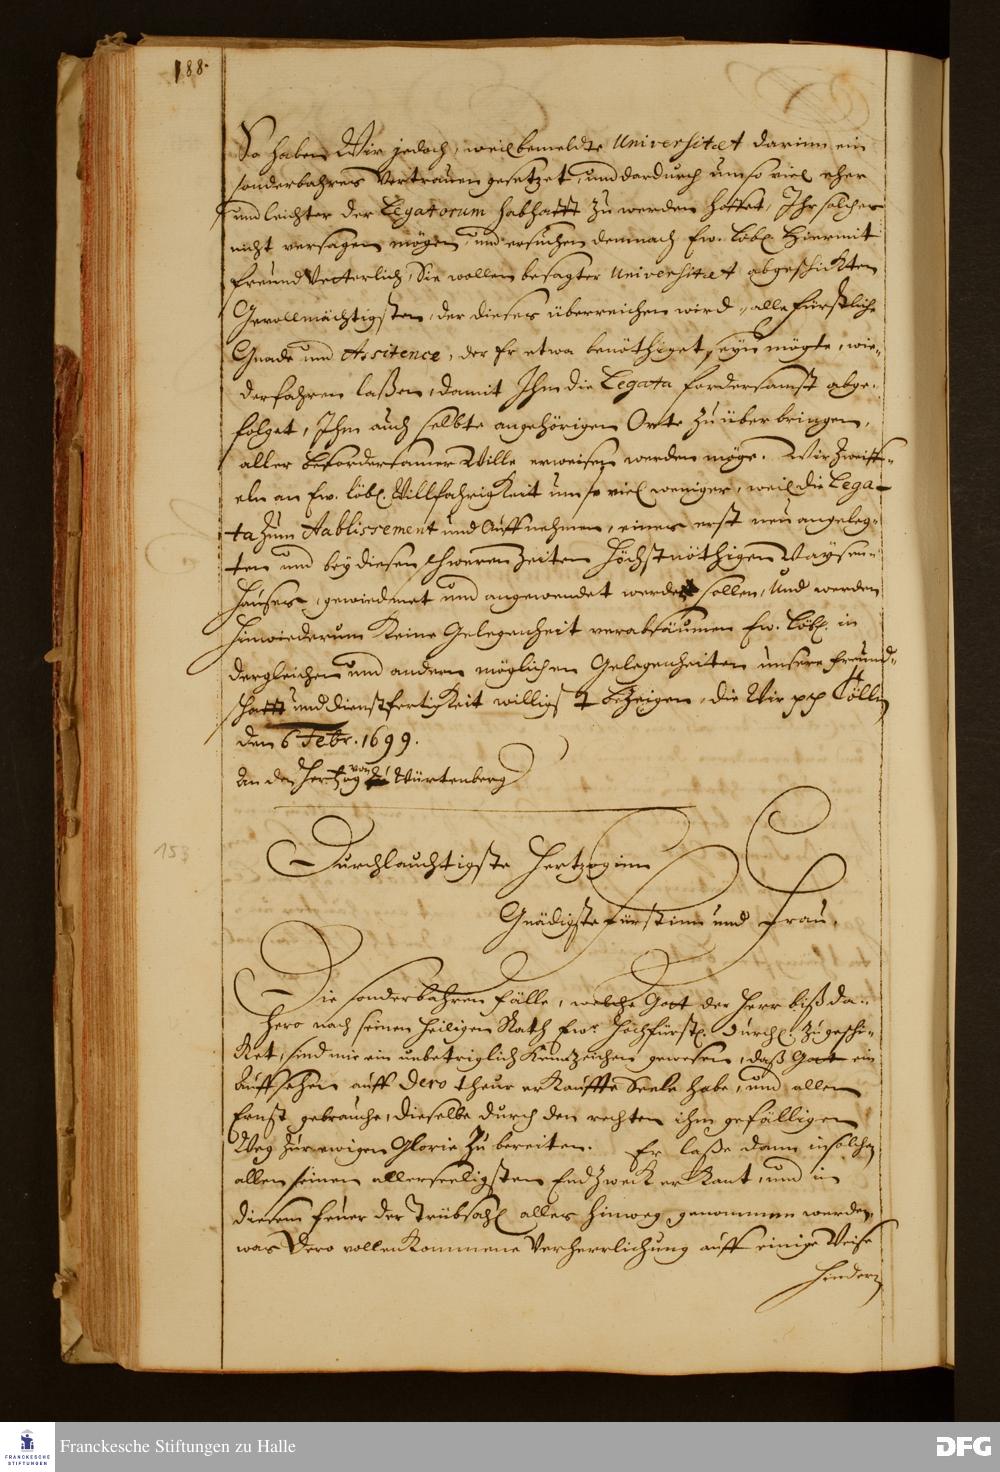 188.
So haben Wir jedoch, weil bemeldte Universitaet darinn ein
sonderbahres Vertrauen gesetzet, und dardurch umso viel eher
und leichter der Legatorum habhafft zu werden hoffet, Ihr solches
nicht versagen mögen, und ersuchen demnach Ew. Löbl. hiermit
freund Vetterlich, Sie wollen besagter Universitaet abgeschickten
Gevollmächtigsten, der dieses überreichen wird, alle Fürstliche
Gnade und Assitence, der Er etwa benöthiget seyn mögte, wie-
derfahren laßen, damit Ihm die Legata fordersamst abge-
folget, Ihm auch selbte angehörigen Orte zu überbringen,
aller befordersamer Wille erweisen werden möge. Wir zweiff-
eln an Ew. Löbl. Willfahrigkeit um so viel weniger, weil die Lega-
ta zum Etablissement und Auffnehmen, eines erst neu angeleg-
ten und bey diesen schweren Zeiten höchstnöthigen Waysen-
hauses, gewiedmet und angewendet werden sollen, Und werden
hinwiederum keine Gelegenheit verabsäumen Ew. Löbl. in
dergleichen und andern möglichen Gelegenheiten unsere Freund-
schafft und dienstfertigkeit willigst zu bezeigen, die Wir pp Cölln
den 6 Febr. 1699.
An den Hertzog von Würtenberg
153
Durchlauchtigste Hertzoginn
Gnädigste Fürstinn und Frau,
Die sonderbahren Fälle, welche Gott der Herr bißda-
hero nach seinen heiligen Rath Ewr. Hochfürstl. Durchl. zugeschi-
ket, sind mir ein unbetriglich Kennzeichen gewesen, daß Gott ein
Auffsehen auff Dero theur erkauffte Seele habe, und allen
Ernst gebrauche, dieselbe durch den rechten ihm gefälligen
Weg zur ewigen Glorie zu bereiten. Er laße dann in solchen
allen seinen allerseeligsten Endzweck erkant, und in
diesem Feuer der Trübsahl alles hinweg genommen werden,
was Dero vollenkommene Verherrlichung auff einige Weise
hindern
FRANCKESCHE
STIFTUNGEN
Franckesche Stiftungen zu Halle
DFG